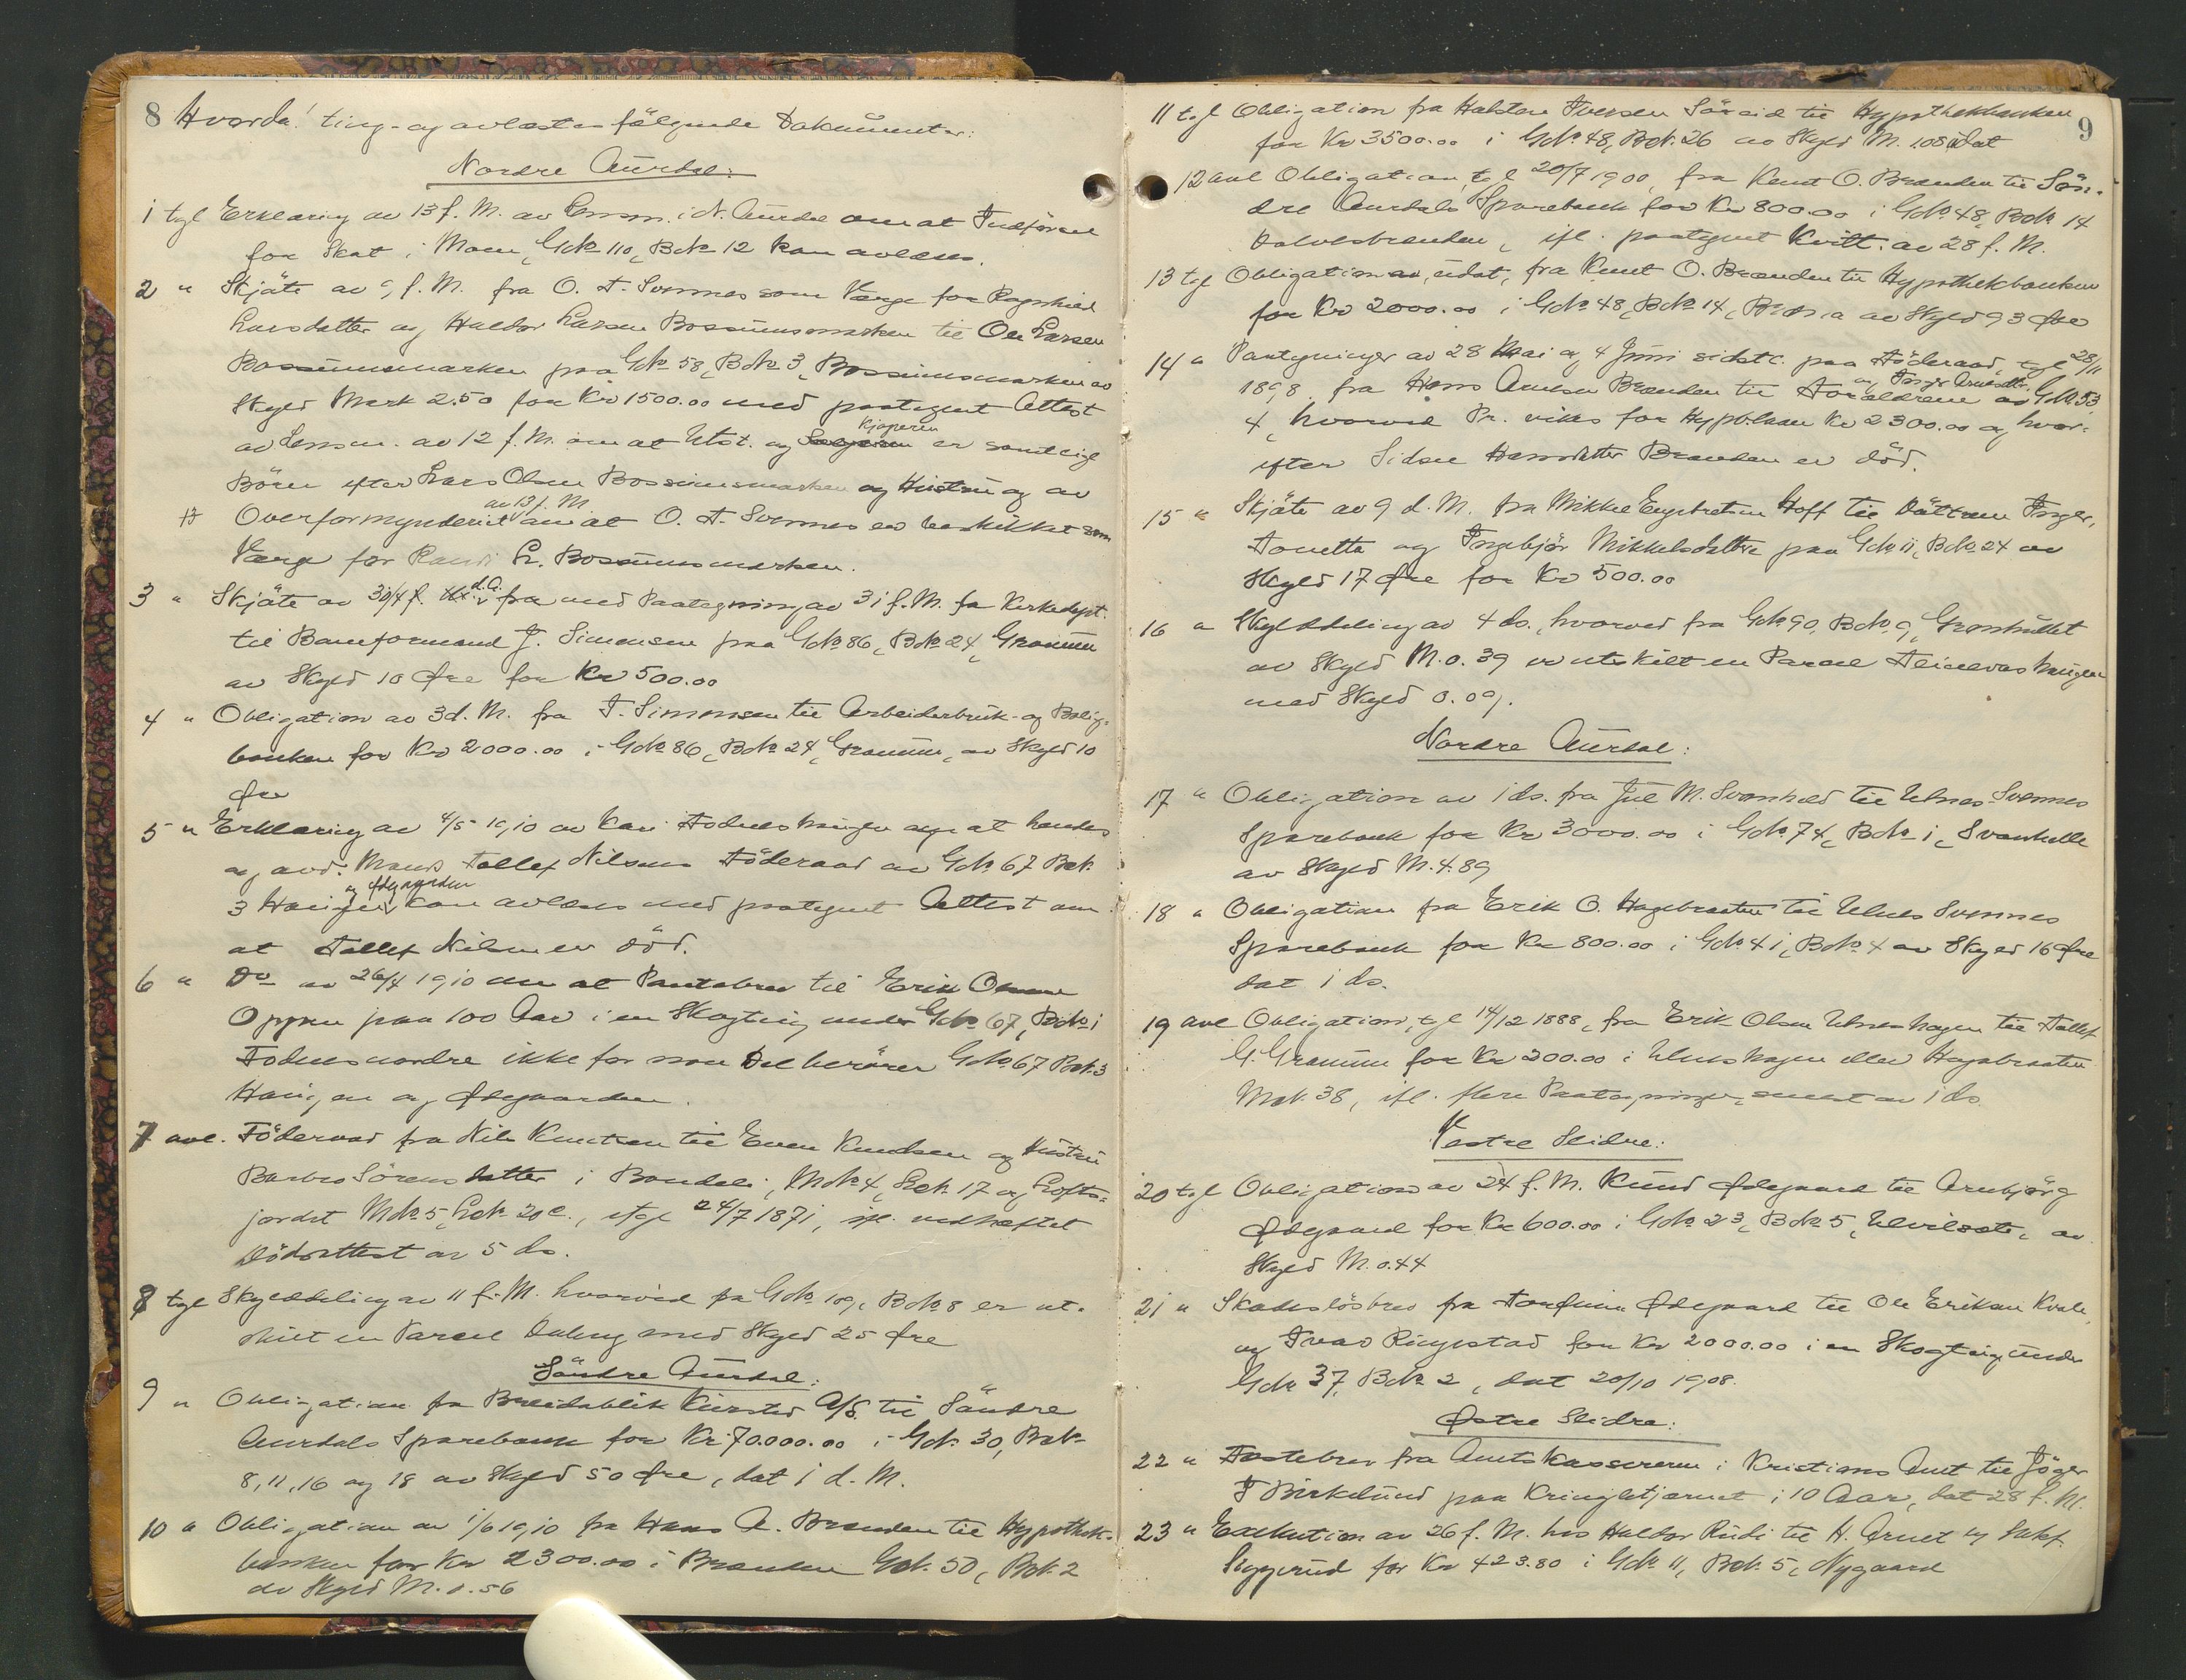 8 Hvorda! ting- og avlæstes fölgende Dokumenter:
Nordre Aurdal:
1 tgl Erklæring av 13 f. M. av Lensm. i N. Aurdal om at Indförsel
for Skat i Moen, Gdno 110, Bdno 12 kan avlæses.
2 " Skjöte av 9 f. M. fra O. T. Svennes som Værge for Ragnhild
Larsdatter og Haldor Larsen Bossumsmarken til Ole Larsen
Bossumsmarken paa Gdno 58, Bdno 3, Bossumsmarken av
Skyld Mark 2.50 for Kr 1500.00 med paategnet Attest
av Lensm. av 12 f. M. om at Utst. og Kjöperen er samtlige
Börn efter Lars Olsen Bossumsmarken og Hustru og av
Overformynderiet av 13 f. M. om at O. T. Svennes er beskikket som
Værge for Randi L. Bossumsmarken.
3 " Skjöte av 30/4 d.A. fra med Paategning av 31 f. M. fra Kirkedept.
til Baneformand J. Simensen paa Gdno 86, Bdno 24, Granum
av Skyld 10 Øre for Kr 500.00
4 " Obligation av 3 d. M. fra J. Simensen til Arbeiderbruk- og Bolig-
banken for Kr 2000.00 i Gdno 86, Bdno 24, Granum, av Skyld 10
Øre
5 " Erklæring av 4/5 1910 av Kari Fodneshaugen om at hendes
og avd. Mands Tollef Nilsens Föderaad av Gdno 67 Bdno
3 Haugen og Ødegaarden kan avlæses med paategnet Attest om
at Tollef Nilsen er död.
6 " Do av 26/4 1910 om at Pantebrev til Erik Olsen
Oppen paa 100 Aar i en Skogteig under Gdno 67, Bdno 1
Fodnes nordre ikke for noen Del berörer Gdno 67 Bdno 3
Haugen og Ødegaarden.
7 avl. Föderaad fra Nils Knutsen til Even Knudsen og Hustru
Barbro Sörensdatter i Brudeli, Mdno 4, Lödno 17 og Lofts-
jordet Mdno 5, Lödno 20 c., tgl 24/7 1871, ifl. vedhæftet
Dödsattest av 5 ds.
8 tgl Skylddeling av 11 f. M. hvorved fra Gdno 109, Bdno 8 er ut-
skilt en Parcel Daleng med Skyld 25 Øre
Söndre Aurdal:
9 " Obligation fra Breidablik Kursted A/S. til Söndre
Aurdals Sparebank for Kr 70.000.00 i Gdno 30, Bdno
8, 11, 16 og 18 av Skyld 50 Øre, dat 1 d. M.
10 " Obligation av 1/6 1910 fra Hans A. Brænden til Hypothek-
banken for Kr 2300.00 i Brænden Gdno 50, Bdno 2
av Skyld M. 1.56
9
11 tgl Obligation fra Halsten Iversen Söreid til Hypothekbanken
for Kr 3500.00 i Gdno 48, Bdno 26 av Skyld M. 1.08 udat
12 avl Obligation, tgl 20/7 1900, fra Knut O. Brænden til Sön-
dre Aurdals Sparebank for Kr 800.00 i Gdno 48, Bdno 14
Dalvesbrenden, ifl. paategnet Kvitt. av 28 f. M.
13 tgl Obligation, udat, fra Knut O. Brænden til Hypothekbanken
for Kr 2000.00 i Gdno 48, Bdno 14, av Skyld 93 Øre
14 " Paategninger av 28 Mai og 4 Juni sidstl. paa Föderaad, tgl 28/11
1898, fra Hans Arnesen Brænden til Forældrene og Inger Arnesdtr, Gdno 53,
4, hvorved Pr. vikes for Hypb.laan Kr 2300.00 og hvor-
efter Sidsel Hansdatter Brænden er död.
15 " Skjöte av 9 d. M. fra Mikkel Engebretsen Hoff til Döttrene Inger,
Tonetta og Ingebjör Mikkelsdöttre paa Gdno 11, Bdno 24 av
Skyld 17 Øre for Kr 500.00
16 " Skylddeling av 4 ds., hvorved fra Gdno 90, Bdno 9, Grønhullet
av Skyld M. 0.39 er utskilt en Parcel
med Skyld 0.09.
Nordre Aurdal:
17 " Obligation av 1 ds. fra Jul M. Svanheld til Ulnes Svennes
Sparebank for Kr 3000.00 i Gdno 74, Bdno 1, Svanhelle
av Skyld M. 4.89
18 " Obligation fra Erik O. Hagebraaten til Ulnes Svennes
Sparebank for Kr 800.00 i Gdno 41, Bdno 4 av Skyld 16 Øre
dat 1 ds.
19 avl Obligation, tgl 14/12 1888, fra Erik Olsen Ulneshagen til Tollef
G. Granum for Kr 200.00 i Ulneshagen eller Hagebraaten
Mdno 38, ifl. flere Paategninger, senest av 1 ds.
Vestre Slidre:
20 tgl Obligation av 24 f. M. Knud Ødegaard til Arnbjörg
Ødegaard for Kr 600.00 i Gdno 23, Bdno 5, av
Skyld M. 0.44
21 " Skadeslösbrev fra Torfinn Ødegaard til Ole Eriksen Kvale
og Ivar Ringestad for Kr 2000.00 i en Skogteig under
Gdno 37, Bdno 2, dat 20/10 1908.
Østre Slidre:
22 " Festebrev fra Amtskassereren i Kristians Amt til Jöger
F Birkelund paa Kringletjernet i 10 Aar, dat 28 f. M.
23 " Exekution av 26 f. M. hos Haldor Rudi til H. Qruet og
Siggerud for Kr 423.80 i Gdno 11, Bdno 5, Nygaard